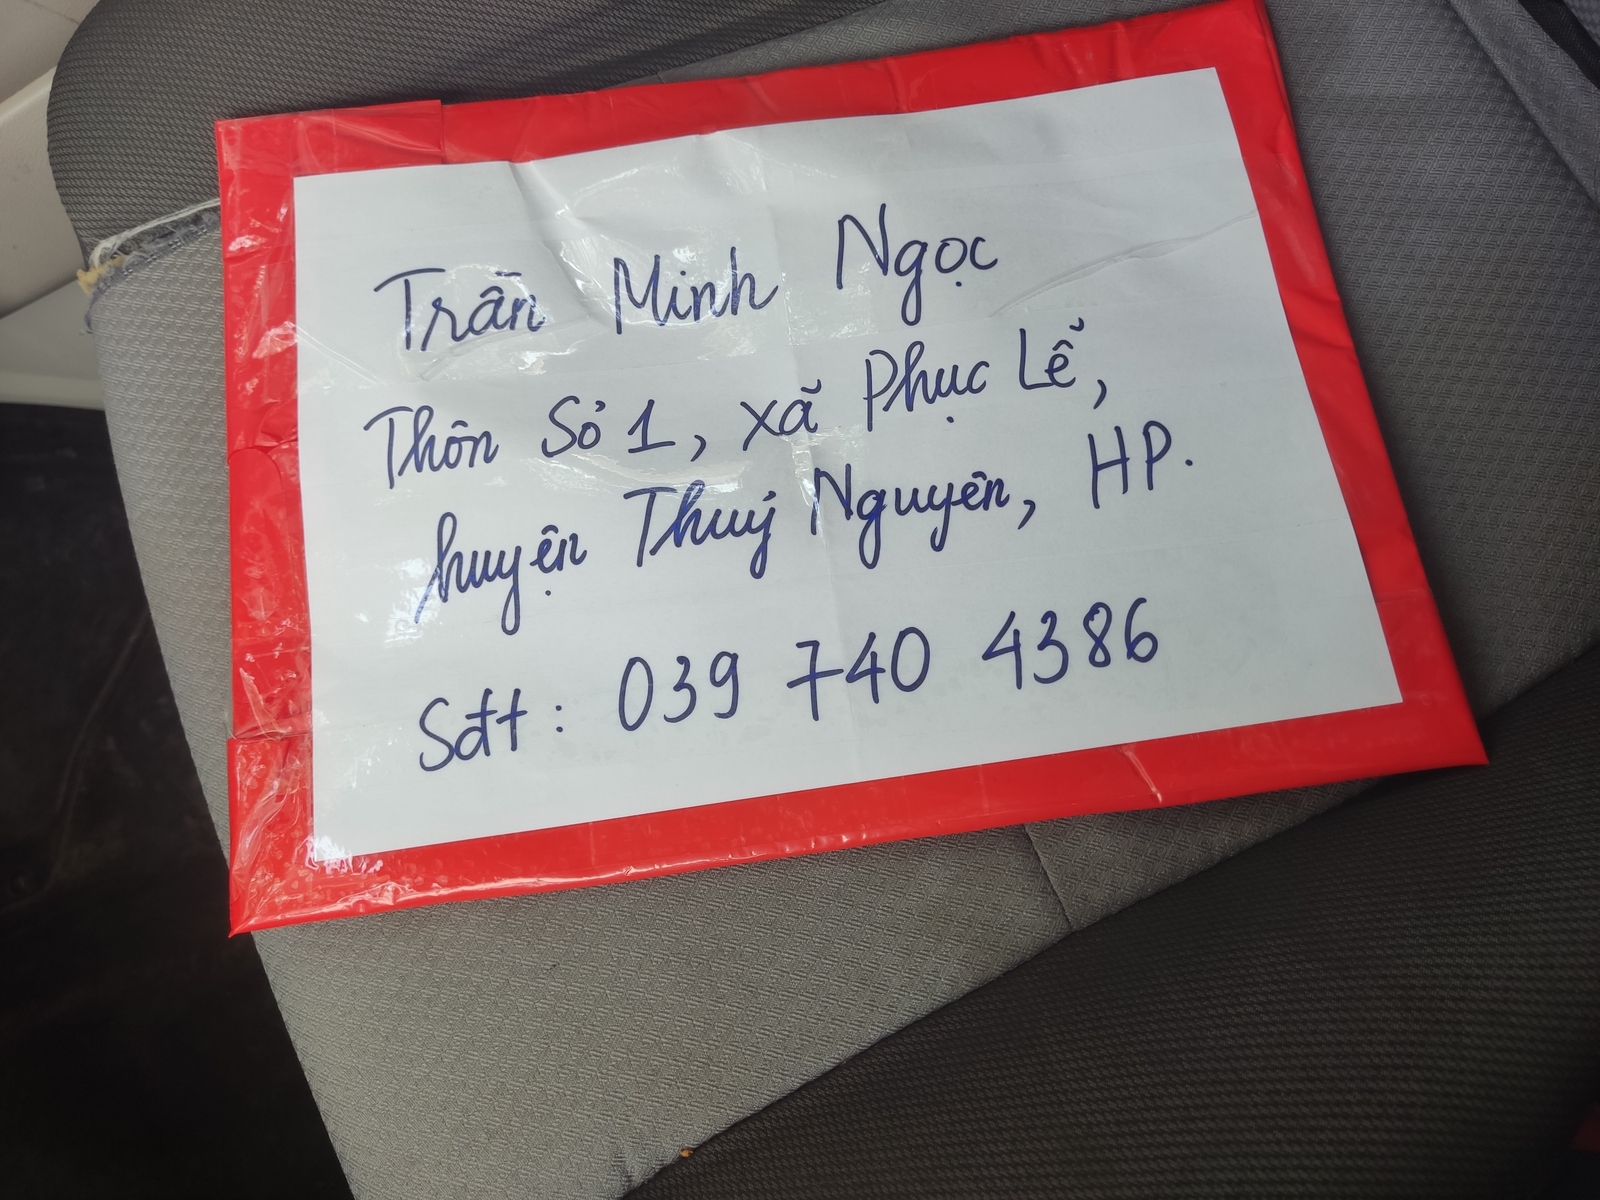 Trần Minh Ngọc
Thôn Số 1, xã Phục Lễ,
huyện Thuỷ Nguyên, HP.
Sđt: 039 740 4386